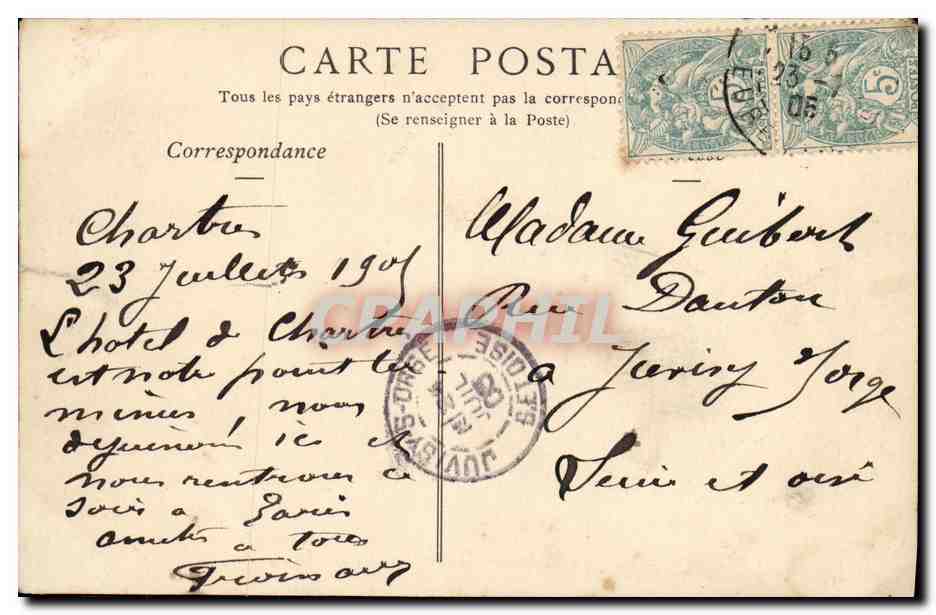 CARTE POSTA
Tous les pays étrangers n'acceptent pas la correspon
(Se renseigner à la Poste)
Correspondance
Chartres
23 Juillet 1905
L'hotel de Chartres
est notre point ter
minus, nous
dejeunons ici et
nous rentrons ce
soir a Paris
amities a tous
Madame Guibert
Rue Danton
a Juvisy s/orge
Seine et oise
15 5
23 -7
05
5c
POSTES
JUVISY-S-ORGE
SEINE-ET-OISE
CPAPHIL